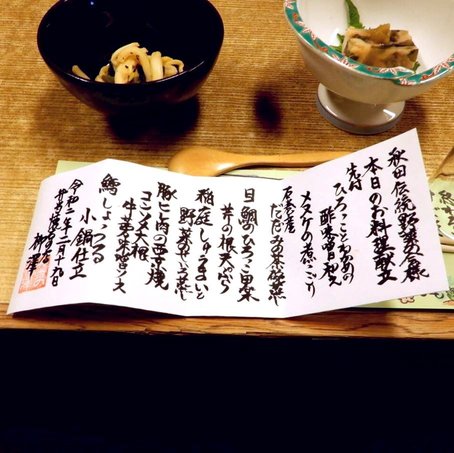 秋田伝統野菜の会様
本日のお料理献立
先付
ひろっことわかめの
酢味噌和え
メスケの煮こごり
だだみの茶碗蒸し
目鯛のひろっこ田楽
芹の根天ぷら
稲庭しゅうまいと
野菜のせいろ蒸し
豚ヒレ肉の西京焼
コンソメ大根
牛蒡味噌ソース
鱈しょっつる
小鍋仕立
令和二年二月十九日
柳澤